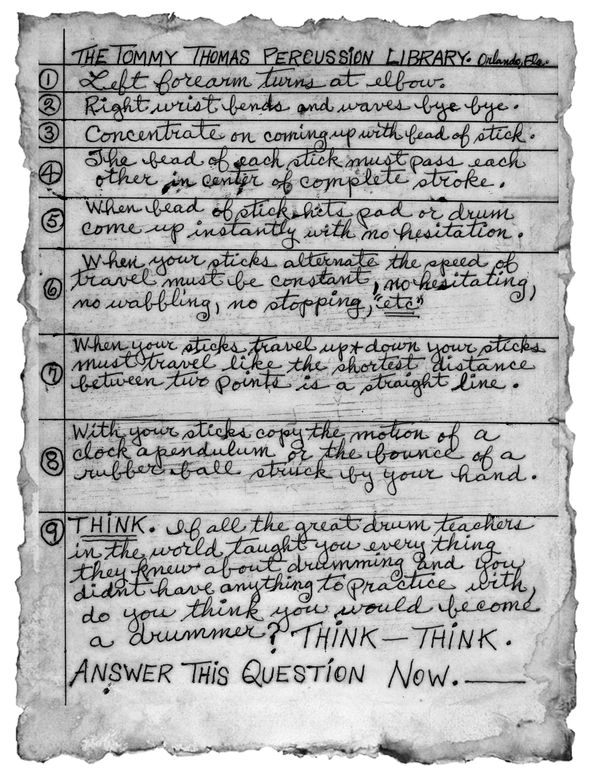 THE TOMMY THOMAS PERCUSSION LIBRARY. Orlando, Fla.
① Left forearm turns at elbow.
② Right wrist bends and waves bye bye.
③ Concentrate on coming up with bead of stick.
④ The bead of each stick must pass each
other in center of complete stroke.
⑤ When bead of stick hits pad or drum
come up instantly with no hesitation.
⑥ When your sticks alternate the speed of
travel must be constant, no hesitating,
no wabbling, no stopping, "etc"
⑦ When your sticks travel up + down your sticks
must travel like the shortest distance
between two points is a straight line.
⑧ With your sticks copy the motion of a
clock a pendulum or the bounce of a
rubber ball struck by your hand.
⑨ THINK. If all the great drum teachers
in the world taught you every thing
they knew about drumming and you
didnt have anything to practice with,
do you think you would become
a drummer? THINK — THINK.
ANSWER THIS QUESTION NOW. ——